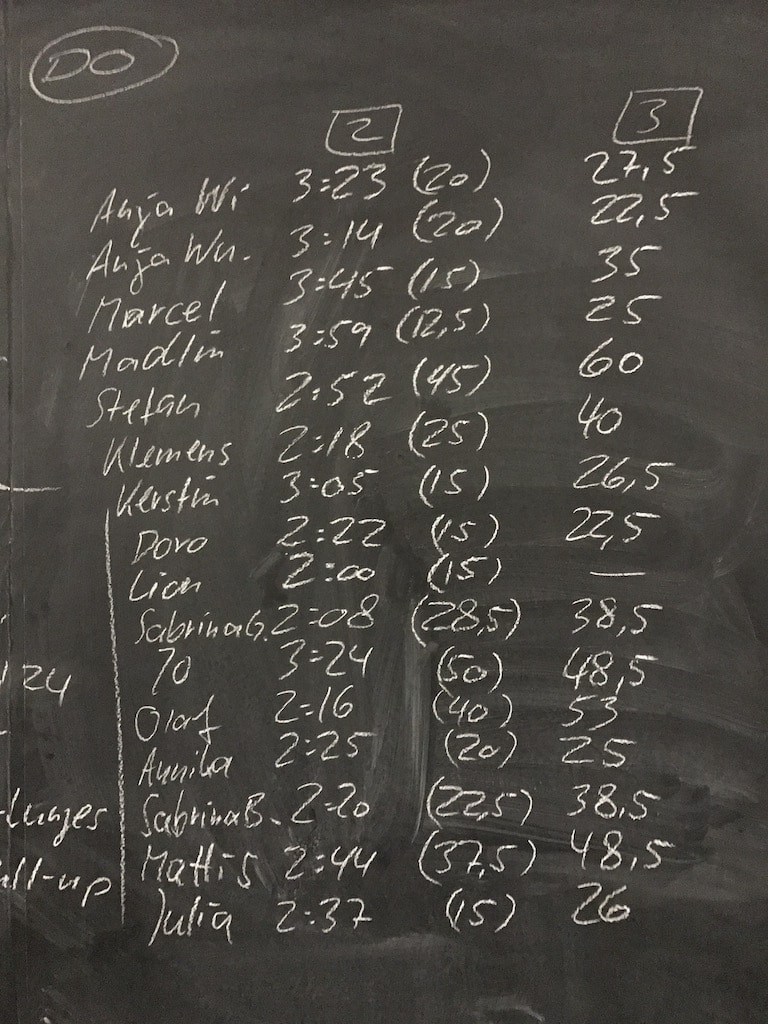 DO
2 3
Anja Wi 3:23 (20) 27,5
Anja Wu. 3:14 (20) 22,5
Marcel 3:45 (15) 35
Madlin 3:59 (12,5) 25
Stefan 2:52 (45) 60
Klemens 2:18 (25) 40
Kerstin 3:05 (15) 26,5
Doro 2:22 (15) 22,5
Lion 2:00 (15) —
Sabrina G. 2:08 (28,5) 38,5
Jo 3:24 (50) 48,5
24
Olaf 2:16 (40) 53
Annika 2:25 (20) 25
Sabrina B. 2:20 (22,5) 38,5
-Lunges
Mattis 2:44 (37,5) 48,5
ull-up
Julia 2:37 (15) 26